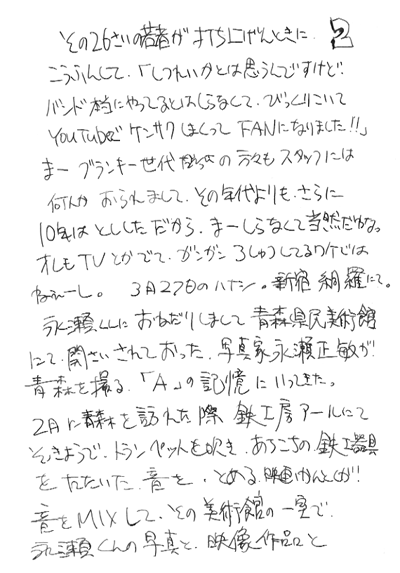 その26さいの若者が打ち上げんときに 2
こうふんして、「しつれいかとは思うんですけど
バンド本当にやってるとはしらなくて、びっくりこいて
YouTubeで ケンサクしまくって FANになりました!!」
まー ブランキー世代だっきの方々も スタッフには
何人か おられまして、その年代よりも、さらに
10年は としした だから、まーしらなくて当然だかなっ
オレも TVとかでて、ガンガン ろしゅつしてるワケでは
ねぇーし。 3月27日のハナシ。新宿 網羅にて。
永瀬くんに おねだりしまして 青森県民美術館
にて、開さいされておった、写真家永瀬正敏が!
青森を撮る、「A」の記憶 に いってきた。
2月に青森を訪れた際 鉄工房アールにて
そっきょうで、トランペットを吹き、あちこちの 鉄工器具
を たたいた、音を、とめる、映画かんとくが!
音を MIX して、その 美術館の一室で、
永瀬くんの写真と、映像作品と